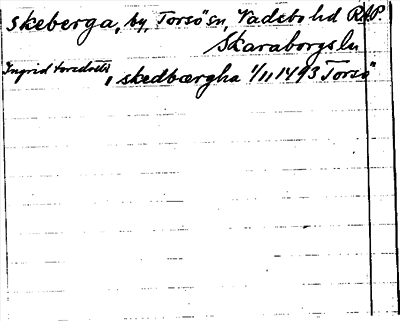 Skeberga, by, Torsö sn, Vadsbo hd RAP.
Skaraborgs ln
Ingrid i skedbærgha 1/11 1493 Torsö